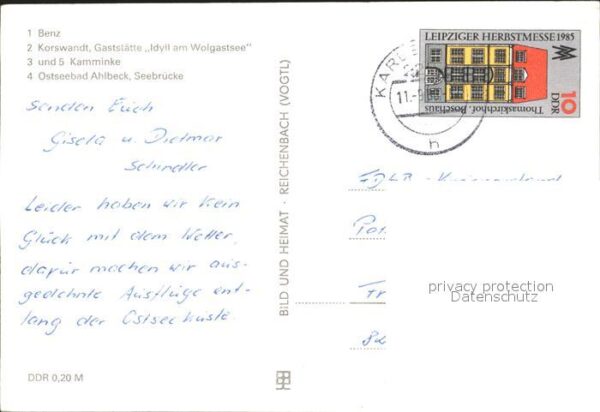 1 Benz
2 Korswandt, Gaststätte „Idyll am Wolgastsee"
3 und 5 Kamminke
4 Ostseebad Ahlbeck, Seebrücke
senden Euch
Gisela u. Dietmar
Schindler
Leider haben wir kein
Glück mit dem Wetter,
dafür machen wir aus-
gedehnte Ausflüge ent-
lang der Ostseeküste.
DDR 0,20 M
BILD UND HEIMAT · REICHENBACH (VOGTL)
LEIPZIGER HERBSTMESSE 1985
Thomaskirchhof, Boschaus
10
DDR
KARL
11.-
h
privacy protection
Datenschutz